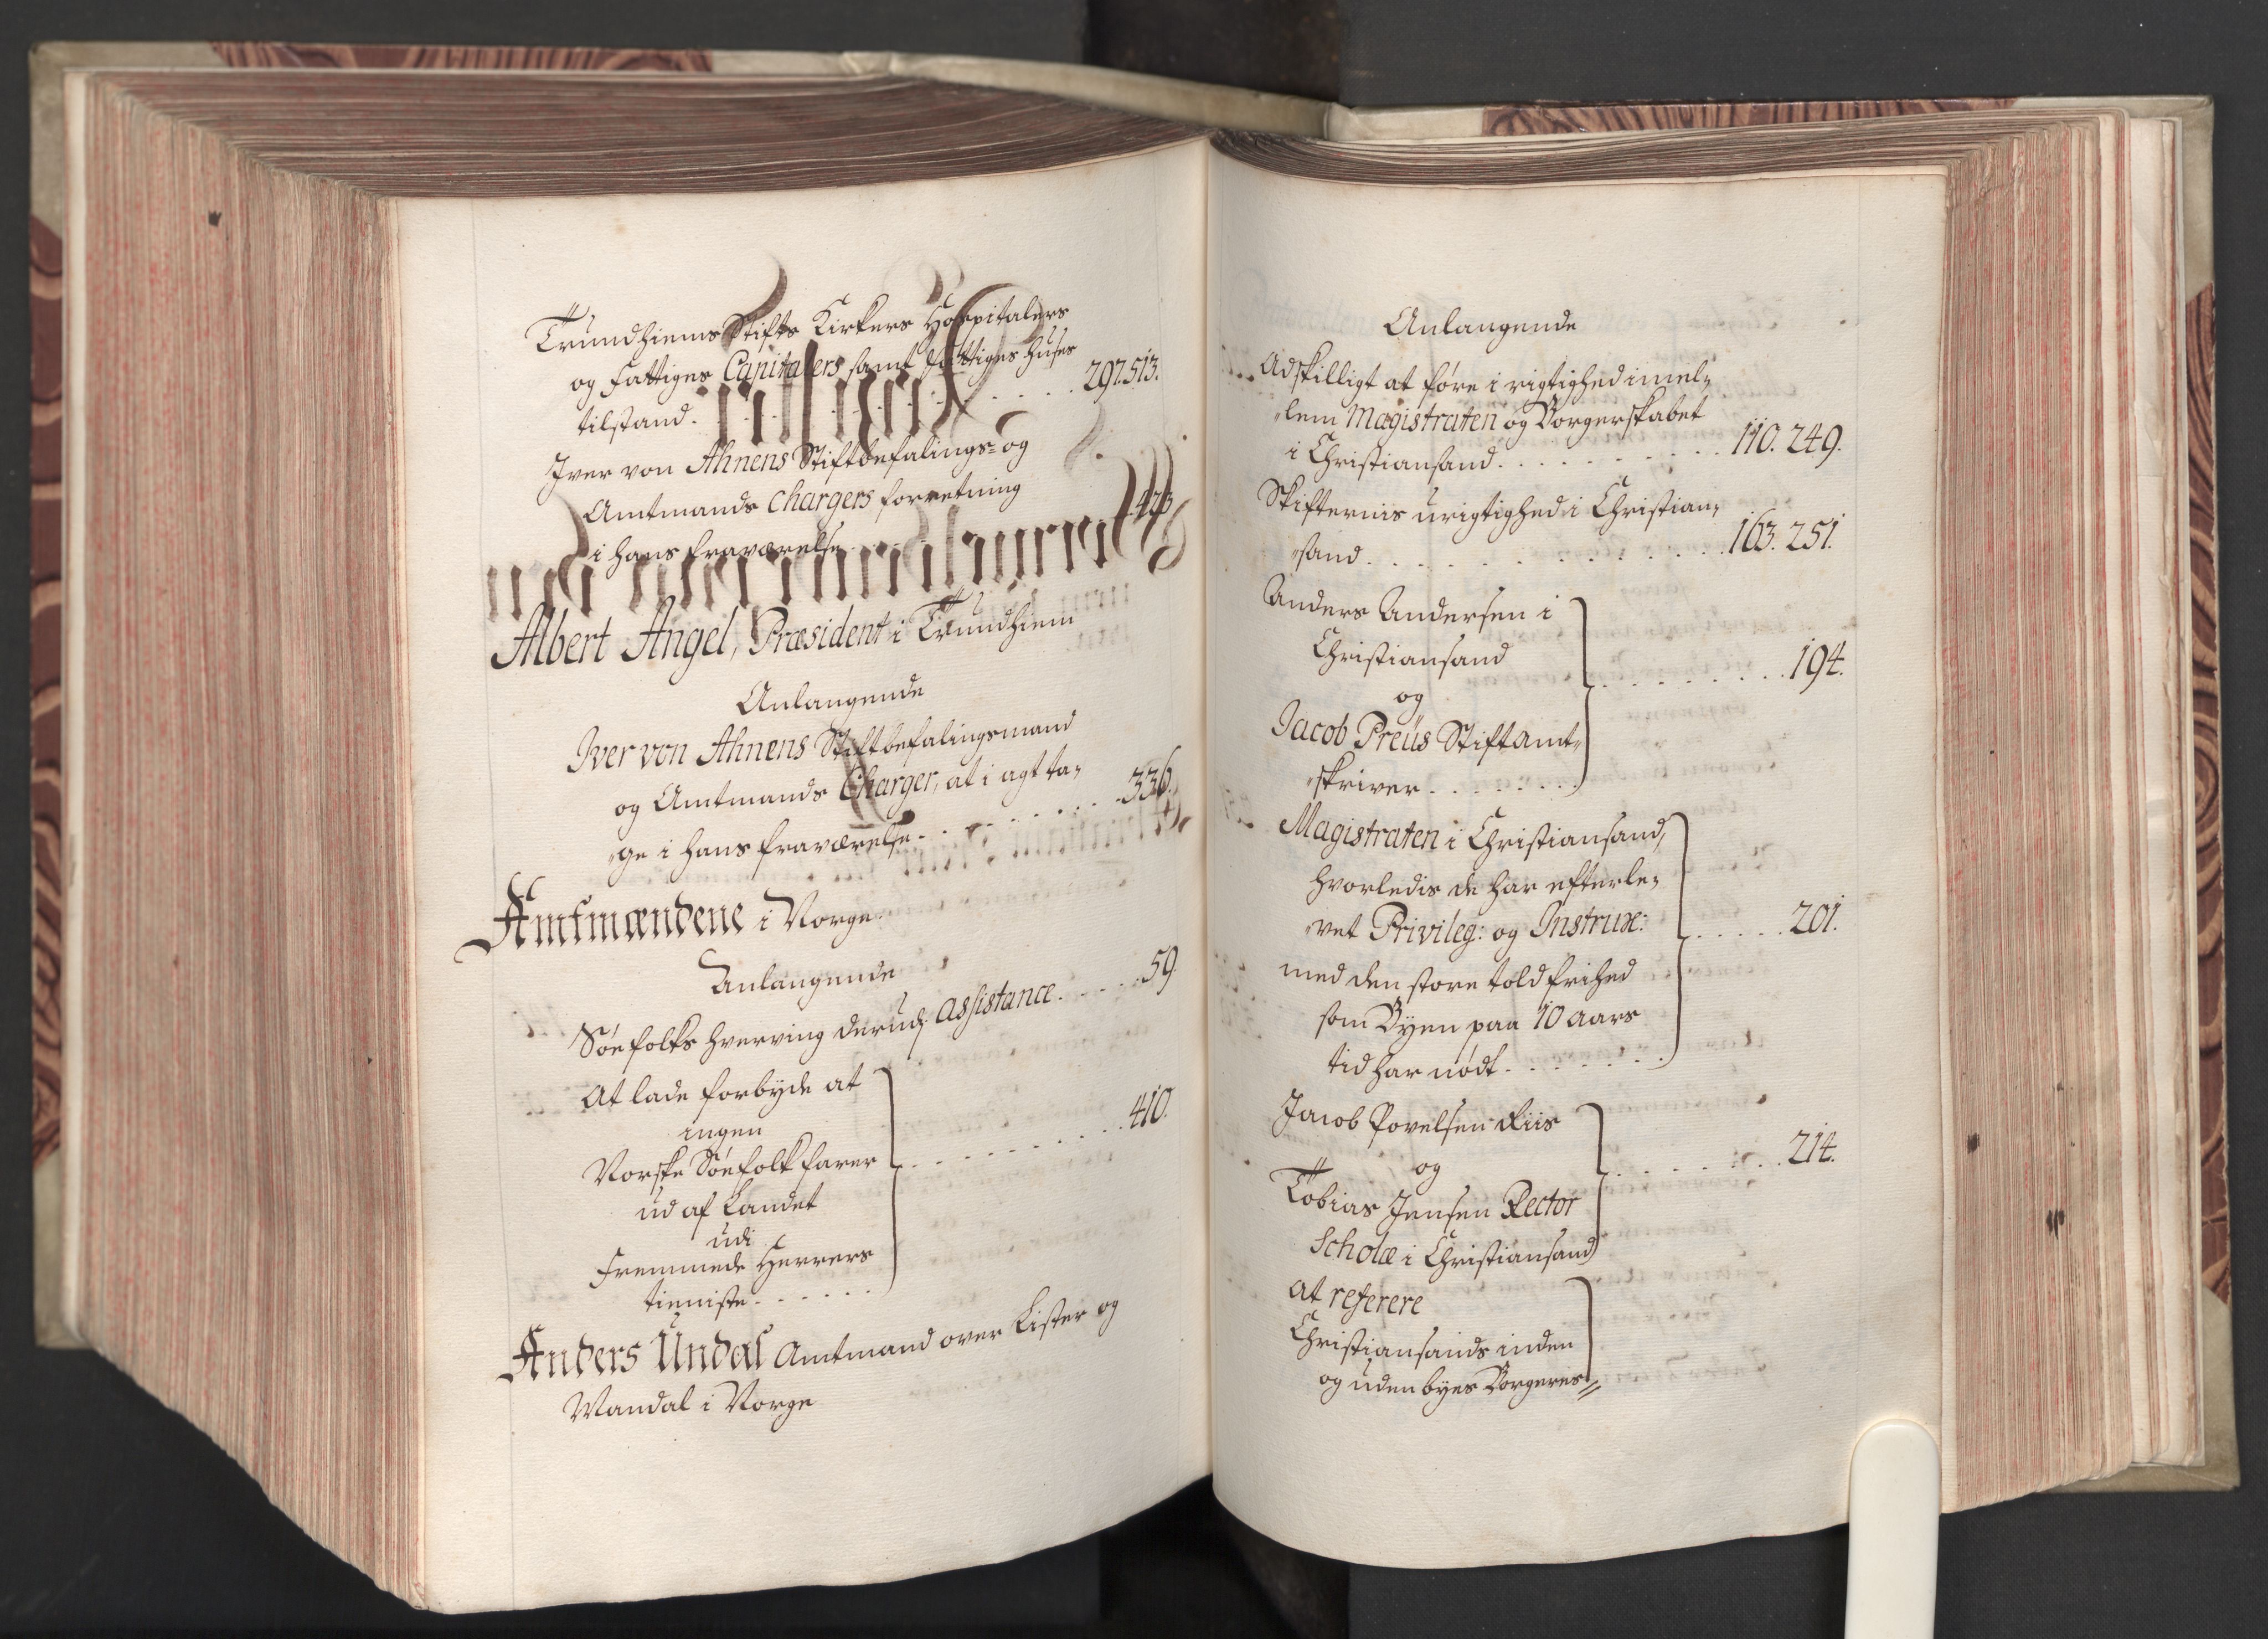 Trundhiems Stifts Kirkers Hospitalers
og Fattiges Capitalers samt Fattiges Huses
tilstand. . . . . . . . . . . 297. 513.
Iver von Ahnens Stiftbefalings= og
Amtmands Chargers forretning
i hans fraværelse . . . 473
Albert Angel, Præsident i Trundhiem
Anlangende
Iver von Ahnens Stiftbefalingsmand
og Amtmands Charger, at i agt ta-
"ge i hans fraværelse . . . . . . . . 336.
Amtmændene i Norge.
Anlangende
Søefolks hverving derudj. Assistance . . . . . 59
At lade forbyde at
ingen
Norske Søefolk farer
ud af Landet
udi
Fremmede Herrers
tieniste . . . . . . 410.
Anders Undal Amtmand over Lister og
Mandal i Norge
Anlangende
Adskilligt at føre i rigtighed imel-
"lem Magistraten og Borgerskabet
i Christiansand . . . . . . . . . . 110. 249.
Skifternis urigtighed i Christian-
"sand . . . . . . . . . . . . 163. 251.
Anders Andersen i
Christiansand
og
Jacob Preüs Stiftamt-
"skriver . . . . . . . . 194.
Magistraten i Christiansand,
hvorledis de har efterle-
"vet Privileg: og Instrux:
med den store told frihed
som Byen paa 10 Aars
tid har nødt . . . . . . . 201.
Jacob Povelsen Riis
og
Tobias Jensen Rector
Scholæ i Christiansand . . . . . . . . 214.
At referere
Christiansands inden
og uden byes Borgeres